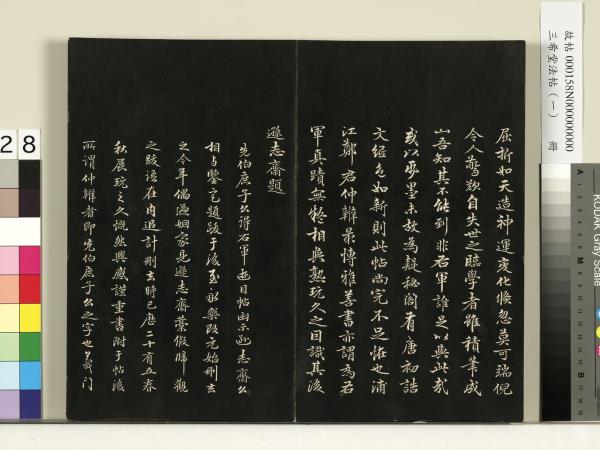 故帖 000158N000000000
三希堂法帖(一) 冊
屈折如天造神運變化倏忽莫可端倪
令人驚歎自失世之臨學者雖積筆成
山吾知其不能到非右軍誰足以與此哉
或以帋墨未故為疑秘閣有唐初誥
文紙色如新則此帖尚完不足怪也浦
江鄭君仲辨最博雅善書亦謂為右
軍真蹟無疑相與熟玩久之因識其後
遜志齋題
先伯庶子公得右軍遊目帖出示遜志齋公
相與鑒定題跋于後至永樂改元始刪去
之今年偶過姻家見遜志齋藁假歸觀
之跋語在內追計刪去時已歷二十有五春
秋展玩之久慨然興感謹重書附于帖後
所謂仲辨者即先伯庶子公之字也義門
28
KODAK Gray Scale
A
M
B